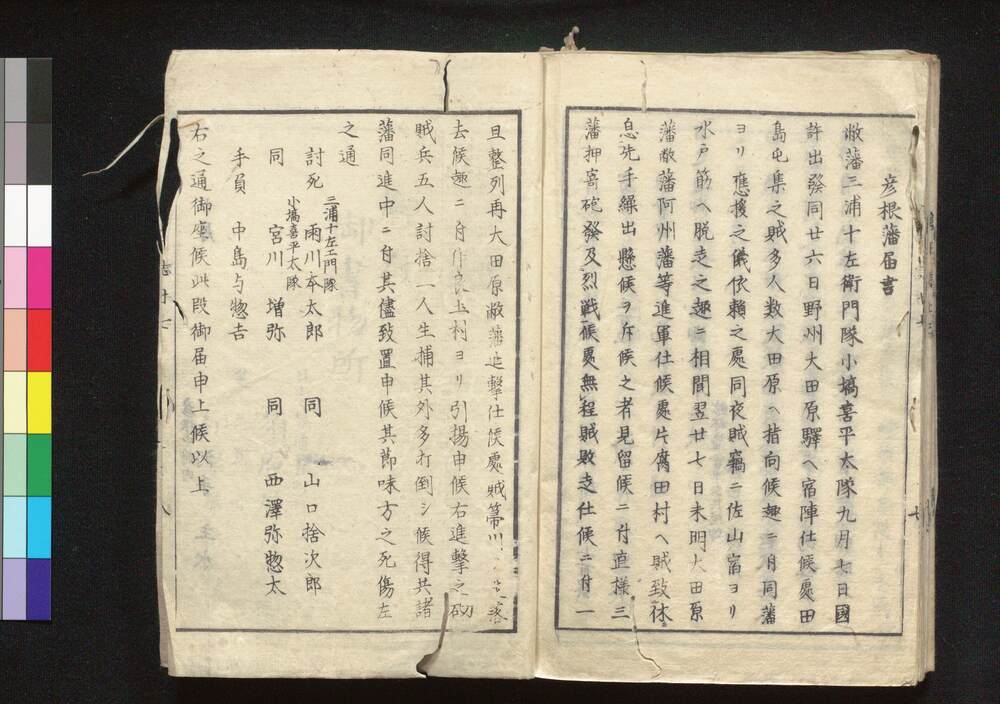 彦根藩届書
敝藩三浦十左衛門隊小塙喜平太隊九月七日國
許出發同廿六日野州大田原驛ヘ宿陣仕候處田
島屯集之賊多人数大田原ヘ指向候趣ニ付同藩
ヨリ應援之儀依頼之處同夜賊竊ニ佐山宿ヨリ
水戸筋ヘ脱走之趣ニ相聞翌廿七日未明大田原
藩敝藩阿州藩等進軍仕候處片府田村ヘ賊致休
息先手繰出懸候ヲ斥候之者見留候ニ付直様三
藩押寄砲發及烈戦候處無程賊敗走仕候ニ付一
旦整列再大田原敝藩追撃仕候處賊箒川 落
去候趣ニ付 村ヨリ引揚申候右進撃之砌
賊兵五人討捨一人生捕其外多打倒シ候得共諸
藩同進中ニ付其儘致置申候其節味方之死傷左
之通
三浦十左エ門隊
討死 雨川本太郎 同 山口捨次郎
小塙喜平太隊
同 宮川 増弥 同 西澤弥惣太
手負 中島与惣吉
右之通御座候此段御届申上候以上